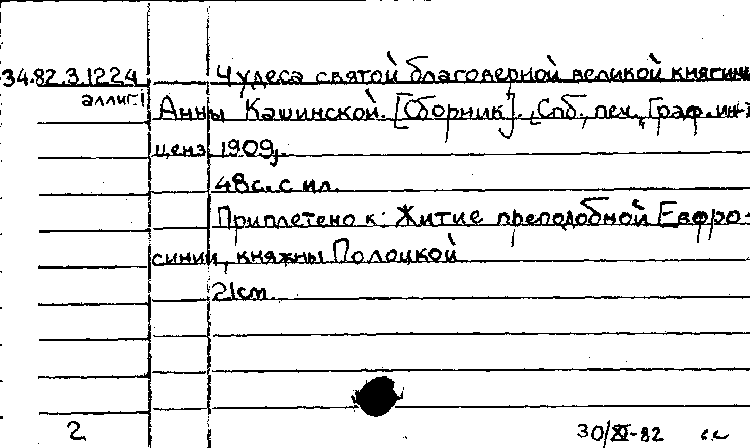 34.82.3.1224 Чудеса святой благоверной великой княгини
аллиг.1 Анны Кашинской. [Сборник]. Спб., печ. Граф. ин-т
ценз. 1909.
48с. с ил.
Приплетено к: Житие преподобной Евфро-
синии, княжны Полоцкой
21см.
2 30/XI-82